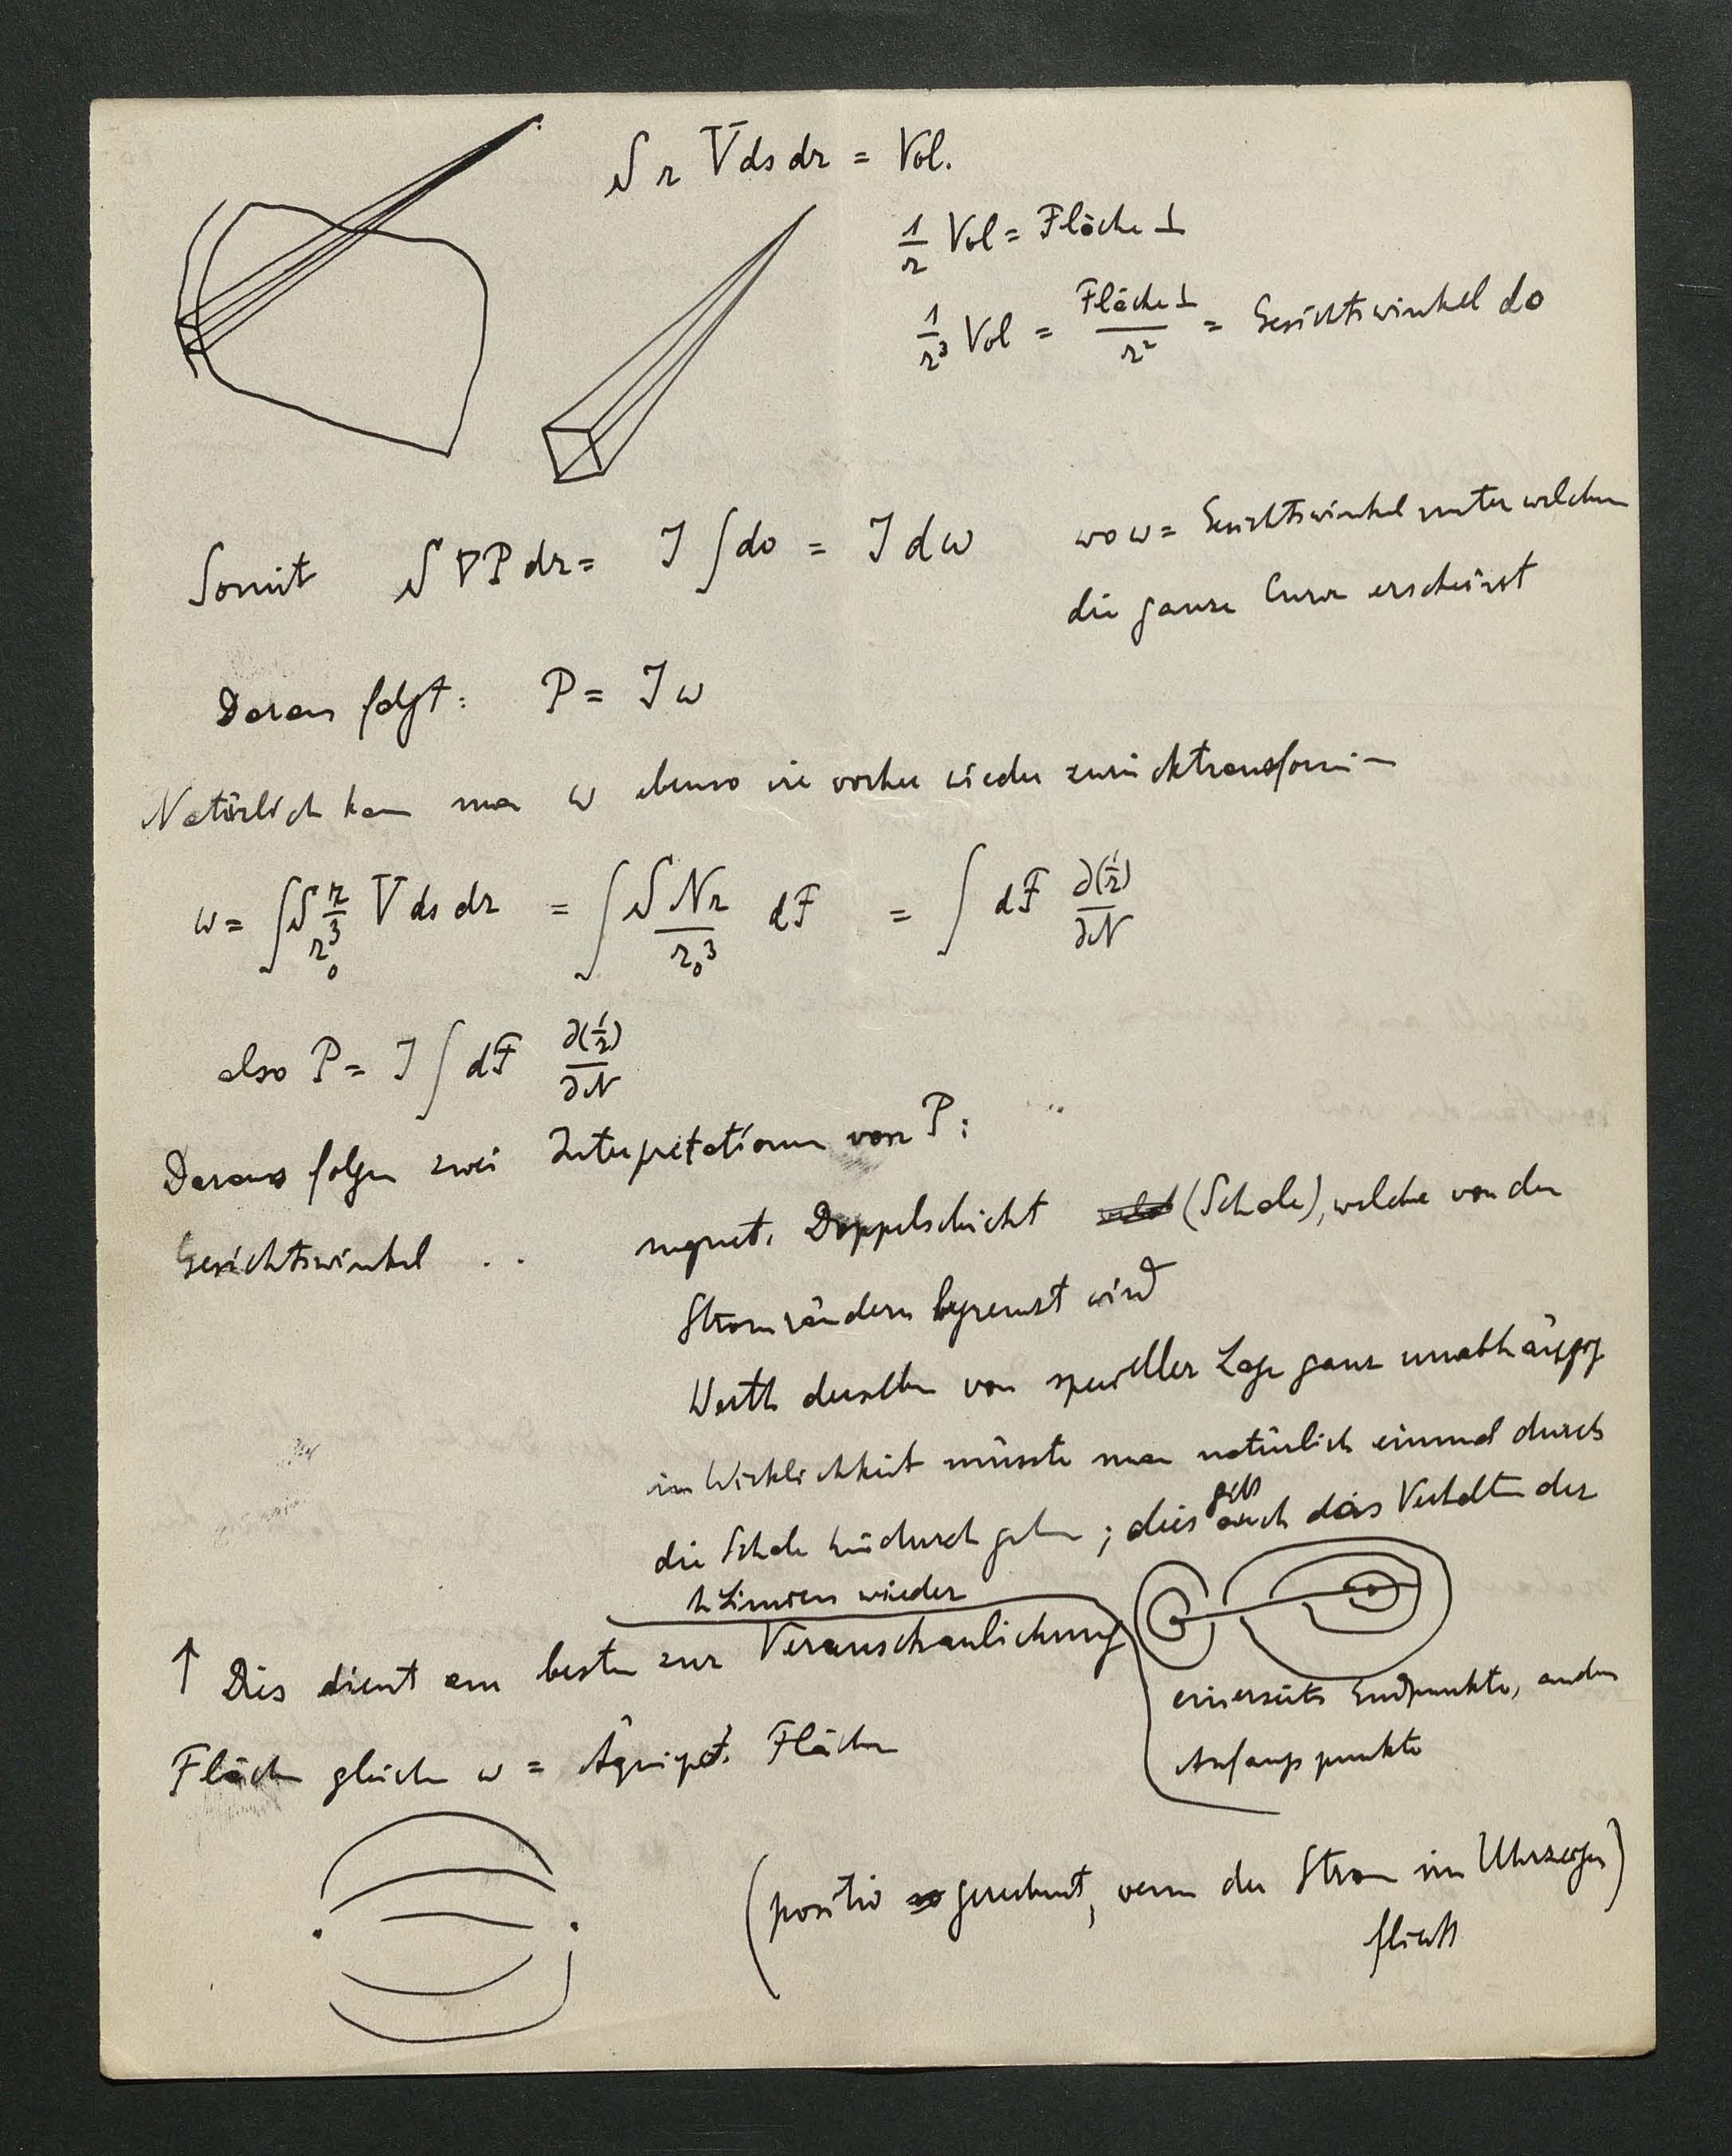 S r V ds dr = Vol.
1/r Vol = Fläche ⊥
1/r³ Vol = Fläche ⊥ / r² = Gesichtswinkel do
Somit S ∇P dr = J ∫ do = J dω wo ω = Gesichtswinkel unter welchem
die ganze Curve erscheint
Daraus folgt: P = J ω
Natürlich kann man ω ebenso wie vorher wieder zurücktransformieren
ω = ∫ S r/r₀³ V ds dr = ∫ S N r / r₀³ dF = ∫ dF ∂(1/r)/∂N
also P = J ∫ dF ∂(1/r)/∂N
Daraus folgen zwei Interpretationen von P:
Gesichtswinkel .. magnet. Doppelschicht (Schale), welche von den
Stromrändern begrenzt wird
Werth derselben von spezieller Lage ganz unabhängig
in Wirklichkeit müsste man natürlich einmal durch
die Schale hindurch gehen; dies gibt auch das Verhalten der
Linien wieder
↑ Dies dient am besten zur Veranschaulichung
einerseits Endpunkte, anders
Anfangspunkte
Flächen gleichen ω = Äquipot. Flächen
(positiv gerechnet, wenn der Strom im Uhrzeiger)
fliesst